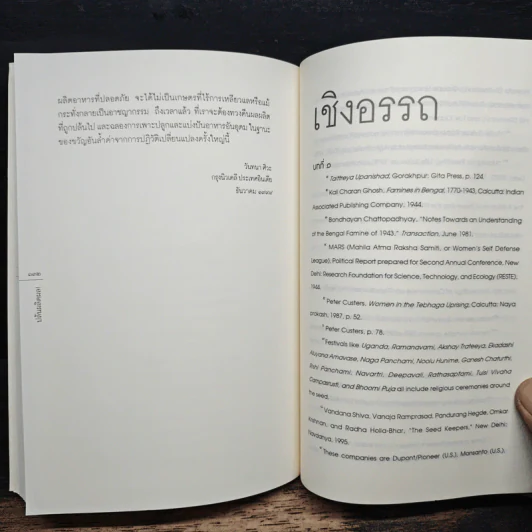 ผลิตอาหารที่ปลอดภัย จะได้ไม่เป็นเกษตรที่ไร้การเหลียวแลหรือแม้
กระทั่งกลายเป็นอาชญากรรม ถึงเวลาแล้ว ที่เราจะต้องทวงคืนผลผลิต
ที่ถูกปล้นไป และฉลองการเพาะปลูกและแบ่งปันอาหารอันอุดม ในฐานะ
ของขวัญอันล้ำค่าจากการปฏิวัติเปลี่ยนแปลงครั้งใหญ่นี้
วันทนา ศิวะ
กรุงนิวเดลี ประเทศอินเดีย
ธันวาคม
ปล้นผลิตผล!
เชิงอรรถ
บทที่ ๑
Taittreya Upanishad; Gorakhpur; Gita Press, p. 124.
Kali Charan Ghosh, Famines in Bengal, 1770-1943, Calcutta: Indian
Associated Publishing Company, 1944.
Bondhayan Chattopadhyay, "Notes Towards an Understanding
of the Bengal Famine of 1943," Transaction, June 1981.
MARS (Mahila Atma Raksha Samiti, or Women's Self Defense
League); Political Report prepared for Second Annual Conference, New
Delhi; Research Foundation for Science, Technology, and Ecology (RESTE),
1944.
Peter Custers, Women in the Tebhaga Uprising; Calcutta; Naya
prokash, 1987, p. 52.
Peter Custers, p. 78.
Festivals like Uganda, Ramanavami, Akshay Trateeya, Ekadashi
Aluyana Amavase, Naga Panchami, Noolu Hunime, Ganesh Chaturthi,
Rishi Panchami, Navartri, Deepavali, Rathasaptami, Tulsi Vivaha
Campasrusti, and Bhoomi Puja all include religious ceremonies around
the seed.
Vandana Shiva, Vanaja Ramprasad, Pandurang Hegde, Omkar
Krishnan, and Radha Holla-Bhar, "The Seed Keepers," New Delhi;
Navdanya, 1995.
These companies are Dupont/Pioneer (U.S.), Monsanto (U.S.),